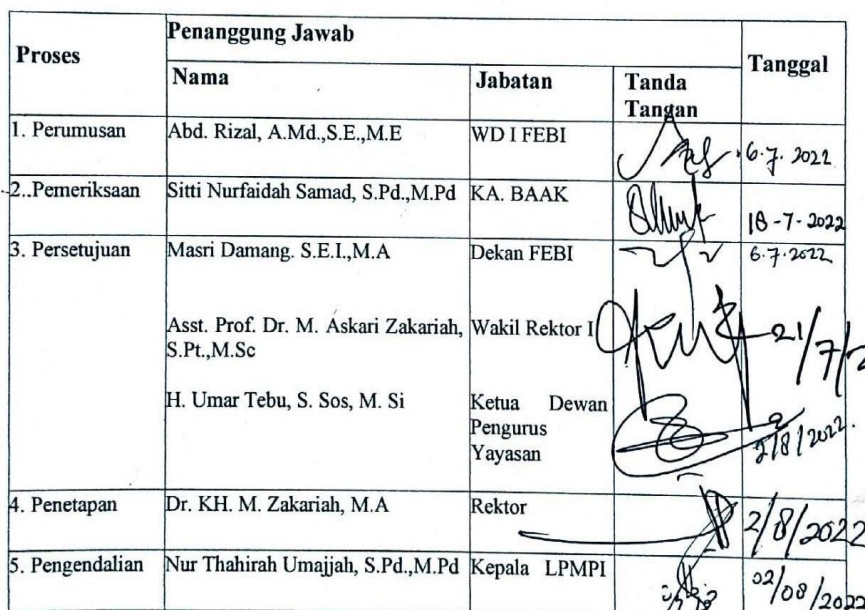 Proses
Penanggung Jawab
Tanggal
Nama
Jabatan
Tanda
Tangan
1. Perumusan
Abd. Rizal, A.Md.,S.E.,M.E
WD I FEBI
6.7.2022
2..Pemeriksaan
Sitti Nurfaidah Samad, S.Pd.,M.Pd
KA. BAAK
18-7-2022
3. Persetujuan
Masri Damang. S.E.I.,M.A
Dekan FEBI
6.7.2022
Asst. Prof. Dr. M. Askari Zakariah,
S.Pt.,M.Sc
Wakil Rektor I
21/7/2
H. Umar Tebu, S. Sos, M. Si
Ketua Dewan
Pengurus
Yayasan
2/8/2022.
4. Penetapan
Dr. KH. M. Zakariah, M.A
Rektor
2/8/2022
5. Pengendalian
Nur Thahirah Umajjah, S.Pd.,M.Pd
Kepala LPMPI
02/08/2022